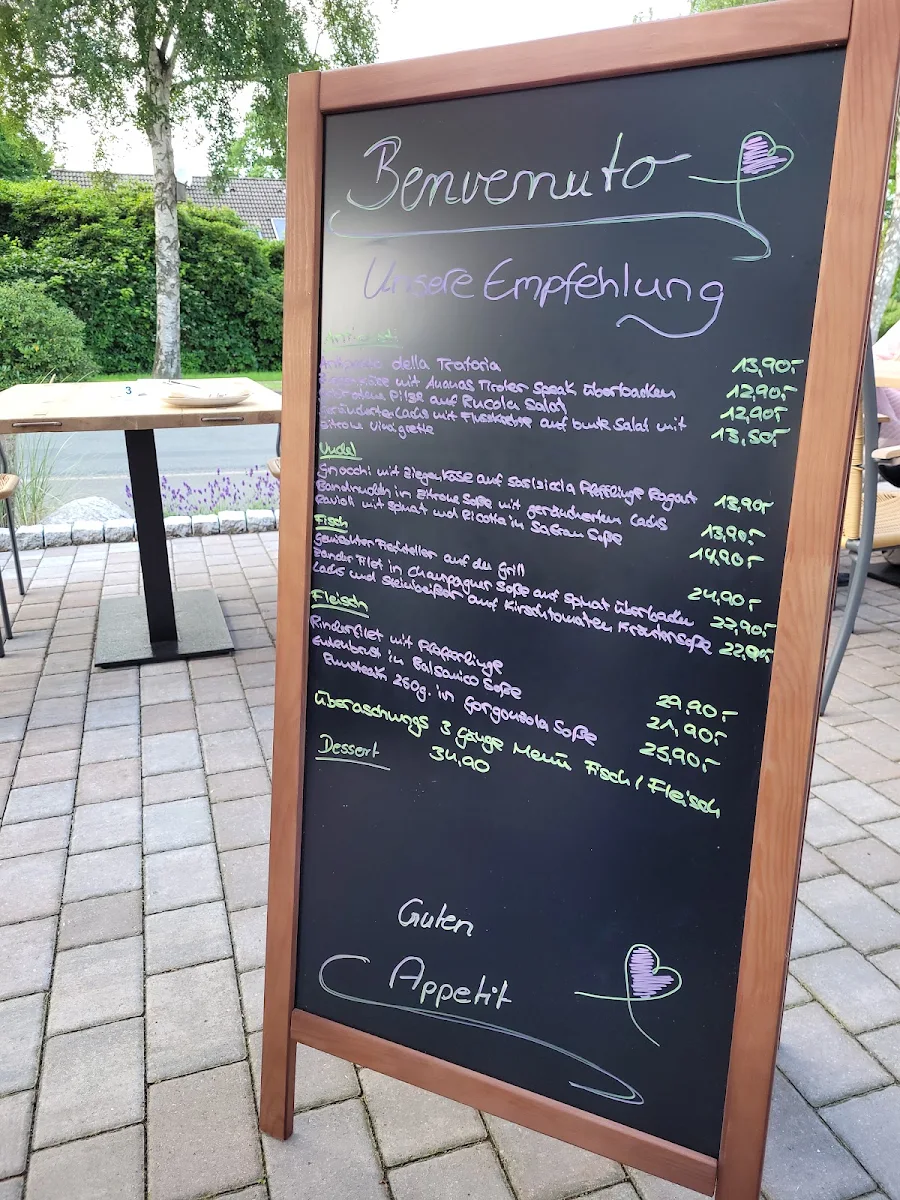 Benvenuto
Unsere Empfehlung
Antipasti
Antipasto della Tratoria 13,90,-
mit Ananas Tiroler Speak überbacken 12,90,-
Pilze auf Rucola Salat 12,90,-
Geräucherter Lachs mit Flusskrebse auf bunte Salat mit 13,50,-
Zitrone Vinaigrette
Nudel
Gnocchi mit Ziegenkäse auf Pfefferlinge Ragout 13,90,-
Bandnudeln in Zitrone Soße mit geräucherten Lachs 13,90,-
Ravioli mit Spinat und Ricotta in Safran Soße 14,90,-
Fisch
Gemischter Fischteller auf der Grill 24,90,-
Zander Filet in Champagner Soße auf Spinat überbacken 22,90,-
Lachs und Steinbeißer auf Kirschtomaten Kräutersoße 22,90,-
Fleisch
Rinderfilet mit Pfefferlinge 29,90,-
Entenbrust in Balsamico Soße 21,90,-
Rumsteak 250g. in Gorgonzola Soße 25,90,-
Überaschungs 3 Gänge Menü Fisch / Fleisch
34,90
Dessert
Guten
Appetit
3